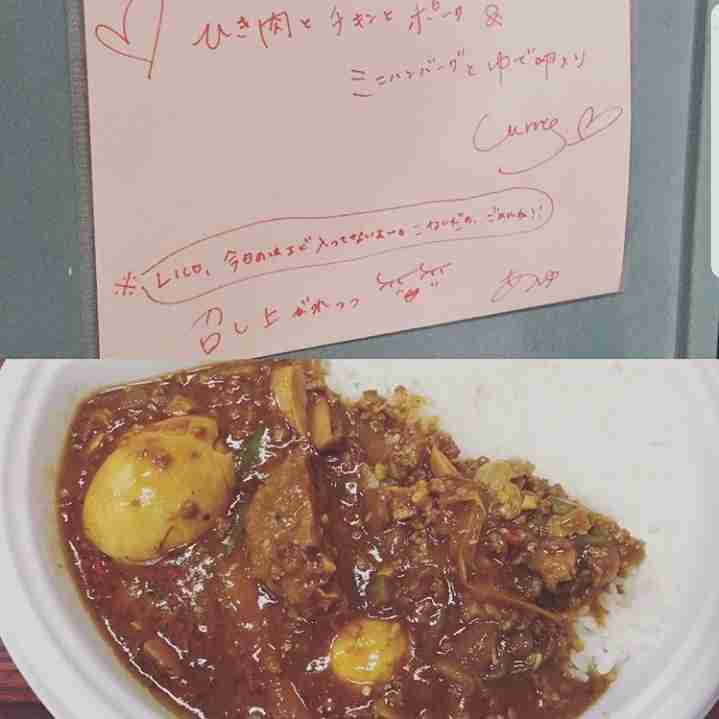 ひき肉とチキンとポーク&
ミニハンバーグとゆで卵入り
Curry
※ LILO、今日のはエビ入ってないよー。こないだの、ごめんね!!
召し上がれっっ
あゆ